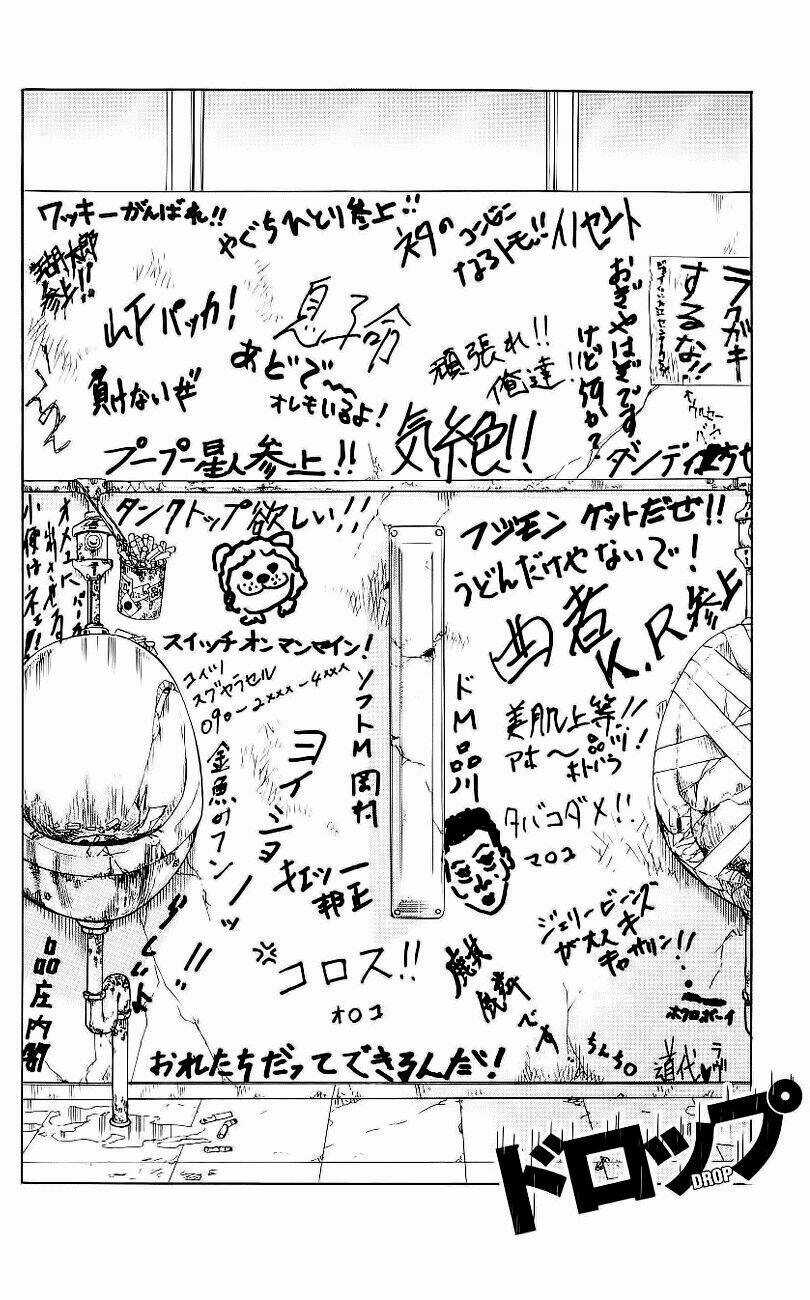 ワッキーがんばれ!!
やぐちひとり参上!!
ネタの
コンビニ
なろトモ!!
イノセント
参上!!
ラクガキ
するな!!
おぎやはぎです
けど何か?
山下パッカ!
息子命
頑張れ!!
俺達!!
負けないぜ
あどで〜
オレもいるよ!
気絶!!
プープー星人参上!!
ダンディ
タンクトップ欲しい!!
フジモン ゲットだぜ!!
うどんだけやないで!
スイッチオンマンセイン!
コイツ
スグヤラセル
090-2xxx-4xxx
ソフトM岡村
ドM品川
西者
K.R参上
美肌上等!!
アホ〜品ツ!
ホトバラ
金魚のフン
ヨイショーッ
タバコダメ!!
マロユ
キエッー
邦正
ジェリービーンズ
が大スキ
キャサリン!!
コロス!!
オロユ
麒麟です
品庄内閣
ホクロボーイ
おれたちだってできるんだ!
ちんちo
道代
ラヴ
ドロップ
DROP